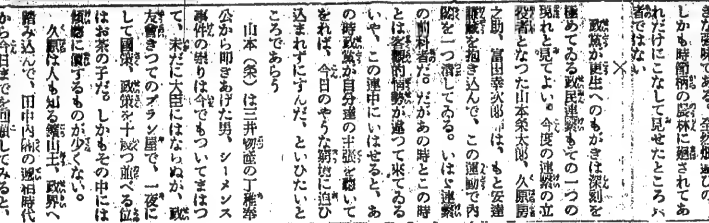 きた強味である。全然畑違ひの
しかも時節柄の農林に廻されてあ
れだけにこなして見せたところ八
者ではない
×
政黨が更生へのもがきは深刻を
極めてゐる政民連繋もその一つの
現れと見てよい。今度の連繋の立
役者となつた山本条太郎、久原房
之助、富田幸次郎
は、もと安達
謙藏を抱き込んで、この運動で内
閣を一つ潰してゐる。いはゞ連繋
の前科者だ。だがあの時とこの時
とは客觀的情勢が違つて來てゐる
いや、この連中にいはせると、あ
の時政黨が自分達の主張を聽いて
をれば、今日のやうな窮境に追ひ
込まれずにすんだ、といひたいと
ころであらう
山本(条)は三井物産の丁稚奉
公から叩きあげた男、シーメンス
事件の祟りは今でもついてまはつ
て、未だに大臣にはならぬが、政
友會きつてのプラン屋で、一夜に
して國策、政策を十や二十並べる位
はお茶の子だ。しかもその中には
傾聽に値するものが少くない。
久原は人も知る鑛山王、政界へ
踏み込んで、田中内閣の遞相時代
から今日までを回顧してみると、